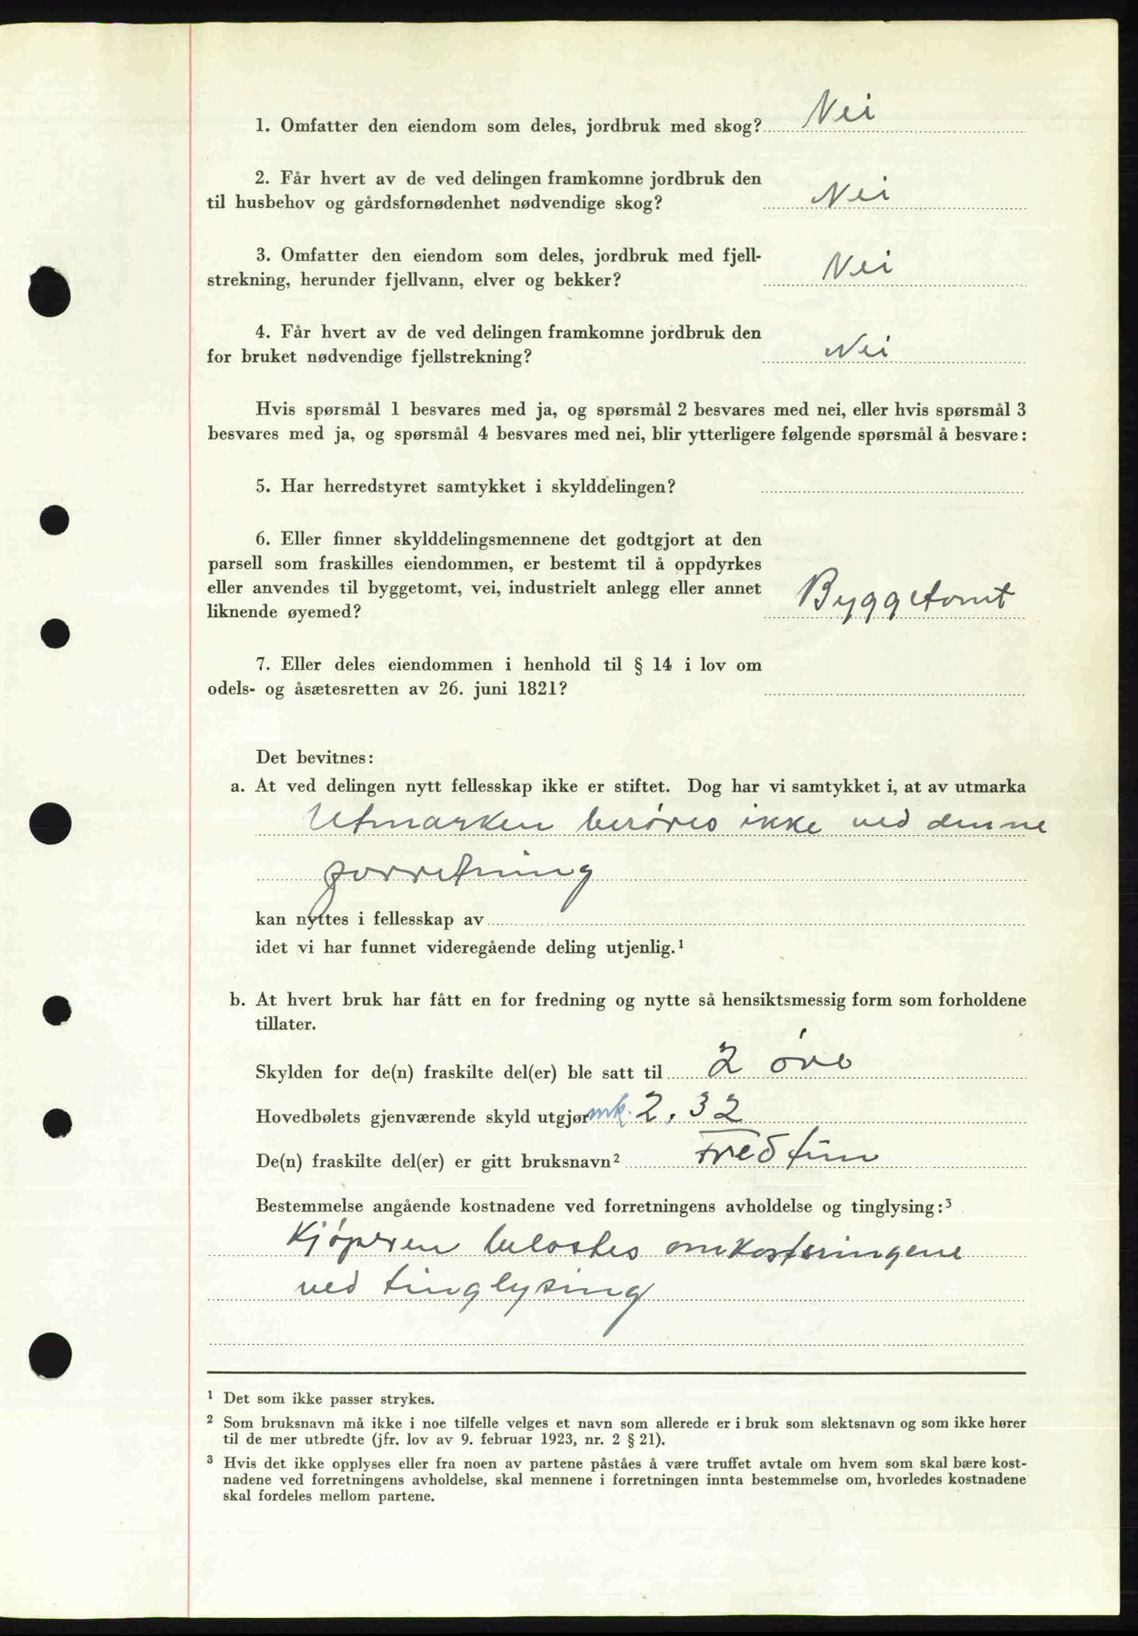 1. Omfatter den eiendom som deles, jordbruk med skog? Nei
2. Får hvert av de ved delingen framkomne jordbruk den
til husbehov og gårdsfornødenhet nødvendige skog? Nei
3. Omfatter den eiendom som deles, jordbruk med fjell-
strekning, herunder fjellvann, elver og bekker? Nei
4. Får hvert av de ved delingen framkomne jordbruk den
for bruket nødvendige fjellstrekning? Nei
Hvis spørsmål 1 besvares med ja, og spørsmål 2 besvares med nei, eller hvis spørsmål 3
besvares med ja, og spørsmål 4 besvares med nei, blir ytterligere følgende spørsmål å besvare:
5. Har herredstyret samtykket i skylddelingen?
6. Eller finner skylddelingsmennene det godtgjort at den
parsell som fraskilles eiendommen, er bestemt til å oppdyrkes
eller anvendes til byggetomt, vei, industrielt anlegg eller annet
liknende øyemed? Byggetomt
7. Eller deles eiendommen i henhold til § 14 i lov om
odels- og åsætesretten av 26. juni 1821?
Det bevitnes:
a. At ved delingen nytt fellesskap ikke er stiftet. Dog har vi samtykket i, at av utmarka
Utmarken berøres ikke ved denne
forretning
kan nyttes i fellesskap av
idet vi har funnet videregående deling utjenlig.¹
b. At hvert bruk har fått en for fredning og nytte så hensiktsmessig form som forholdene
tillater.
Skylden for de(n) fraskilte del(er) ble satt til 2 øre
Hovedbølets gjenværende skyld utgjør mk. 2,32
De(n) fraskilte del(er) er gitt bruksnavn² Fredtun
Bestemmelse angående kostnadene ved forretningens avholdelse og tinglysing:³
Kjøperen belastes omkostningene
ved tinglysing
¹ Det som ikke passer strykes.
² Som bruksnavn må ikke i noe tilfelle velges et navn som allerede er i bruk som slektsnavn og som ikke hører
til de mer utbredte (jfr. lov av 9. februar 1923, nr. 2 § 21).
³ Hvis det ikke opplyses eller fra noen av partene påståes å være truffet avtale om hvem som skal bære kost-
nadene ved forretningens avholdelse, skal mennene i forretningen innta bestemmelse om, hvorledes kostnadene
skal fordeles mellom partene.